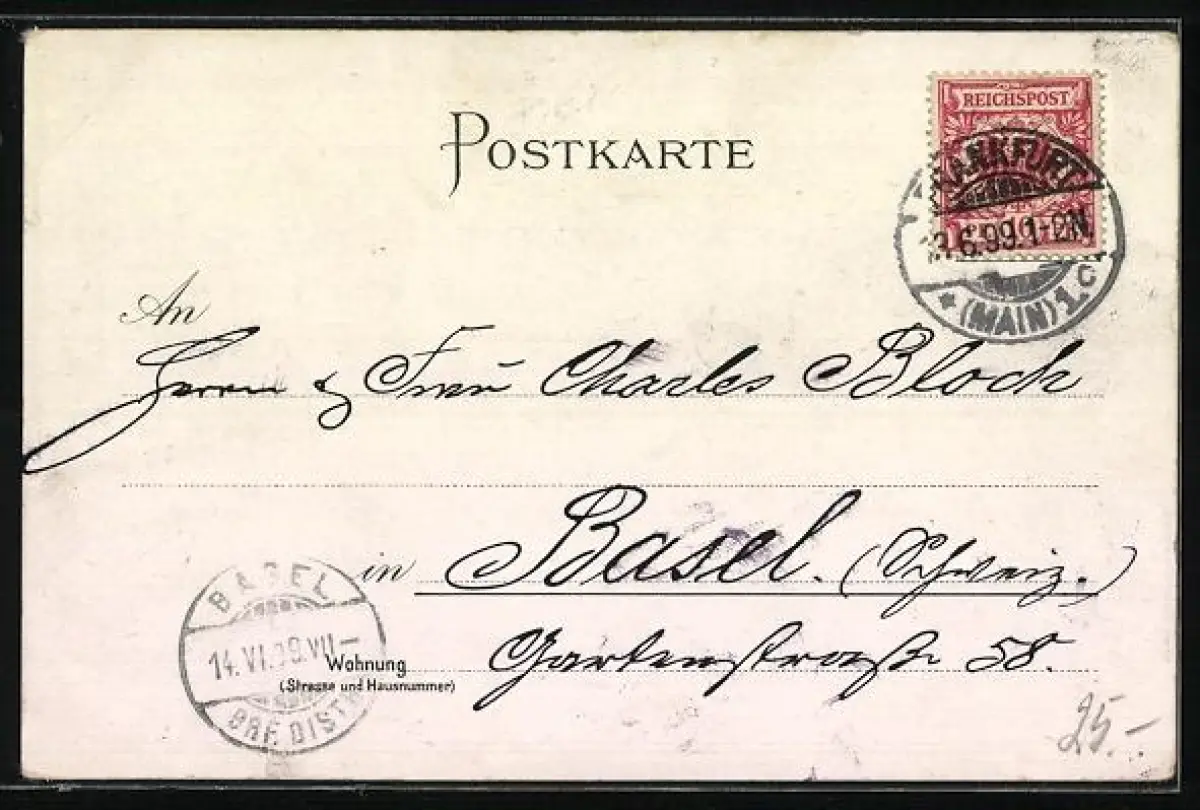 POSTKARTE
REICHSPOST
FRANKFURT
3.6.99.1-2N.
* (MAIN) 1.c
An
Herrn & Frau Charles Bloch
in Basel. (Schweiz.)
BASEL
14.VI.99.VII-
BRF. DISTR
Wohnung
(Strasse und Hausnummer)
Gartenstraße 58.
25.-